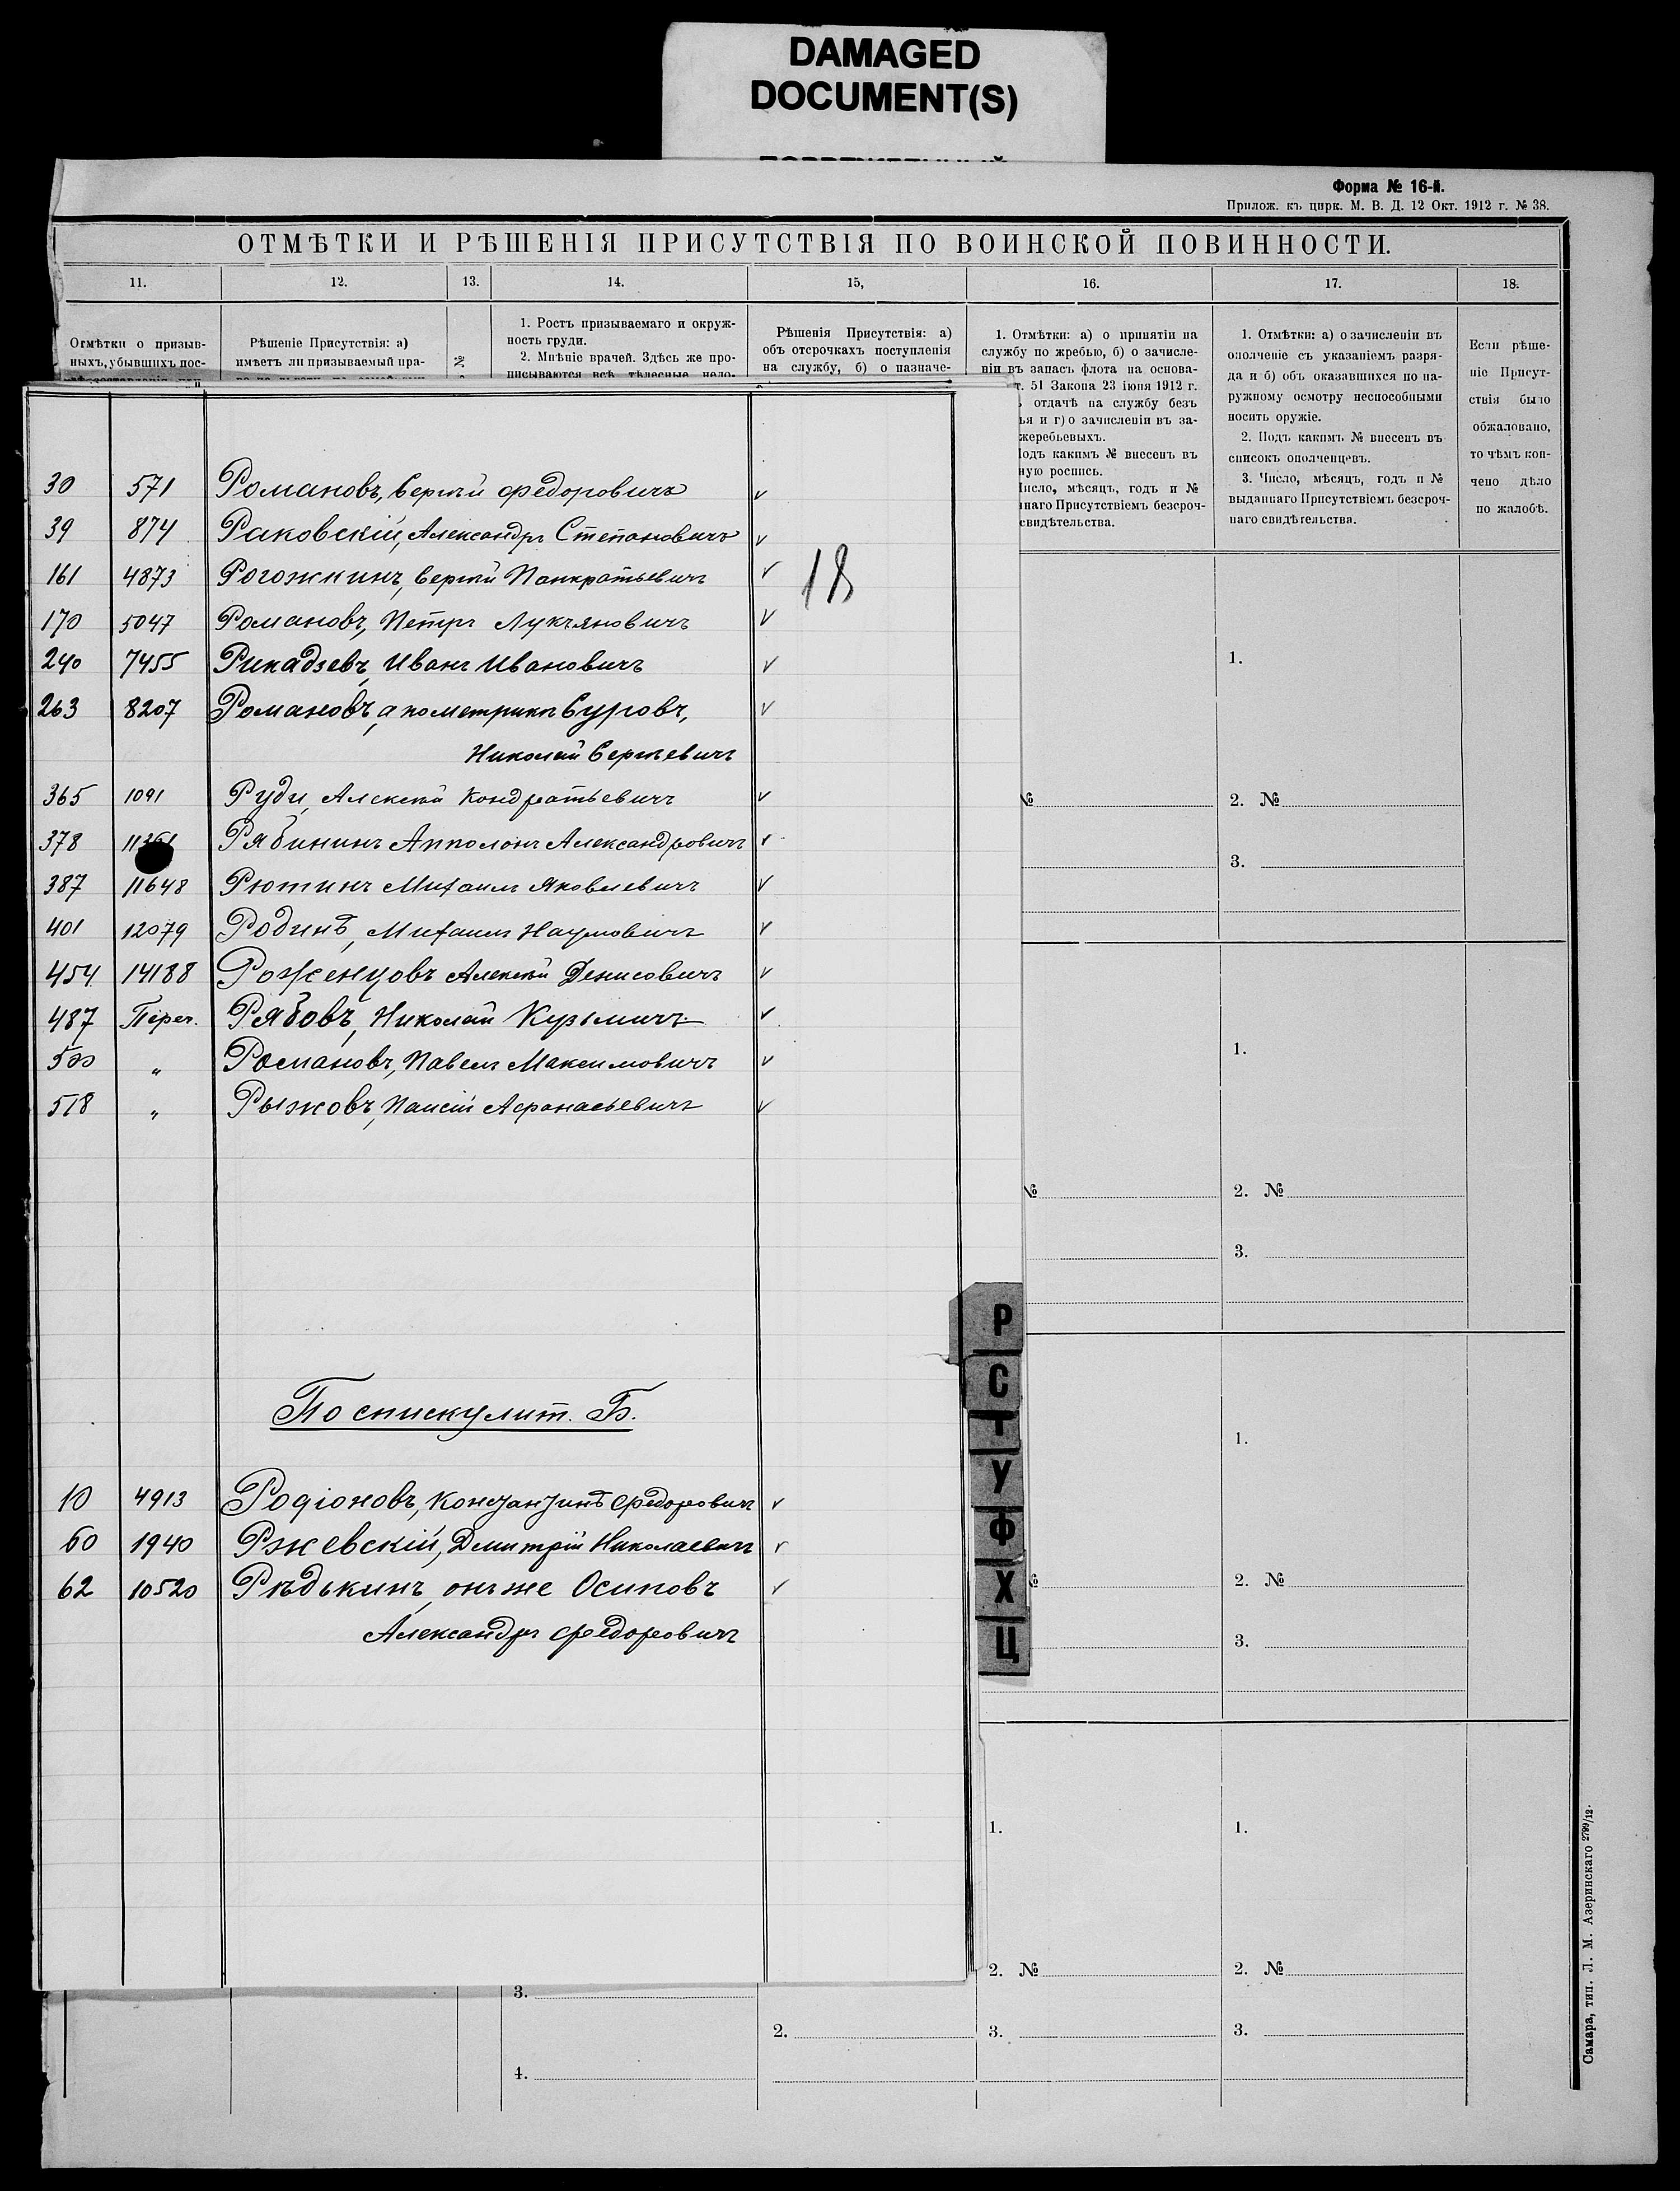 DAMAGED
DOCUMENT(S)
Форма № 16-й.
Прилож. къ цирк. М. В. Д. 12 Окт. 1912 г. № 38.
ОТМѢТКИ И РѢШЕНІЯ ПРИСУТСТВІЯ ПО ВОИНСКОЙ ПОВИННОСТИ.
11. 12. 13. 14. 15, 16. 17. 18.
Отмѣтки о призыв-
ныхъ, убывшихъ пос-
Рѣшеніе Присутствія: а)
имѣетъ ли призываемый пра-
№
1. Ростъ призываемаго и окруж-
ность груди.
2. Мнѣніе врачей. Здѣсь же про-
писываются всѣ тѣлесные недо-
Рѣшенія Присутствія: а)
объ отсрочкахъ поступленія
на службу, б) о назначе-
1. Отмѣтки: а) о принятіи на
службу по жребью, б) о зачисле-
ніи въ запасъ флота на основа-
т. 51 Закона 23 іюня 1912 г.
отдачѣ на службу безъ
ья и г) о зачисленіи въ за-
жеребьевыхъ.
одъ какимъ № внесенъ въ
ную роспись.
Число, мѣсяцъ, годъ и №
наго Присутствіемъ безсроч-
свидѣтельства.
1. Отмѣтки: а) о зачисленіи въ
ополченіе съ указаніемъ разря-
да и б) объ оказавшихся по на-
ружному осмотру неспособными
носить оружіе.
2. Подъ какимъ № внесенъ въ
списокъ ополченцевъ.
3. Число, мѣсяцъ, годъ и №
выданнаго Присутствіемъ безсроч-
наго свидѣтельства.
Если рѣше-
ніе Присут-
ствія было
обжаловано,
то чѣмъ кон-
чено дѣло
по жалобѣ.
30 571 Романовъ, Сергѣй Федоровичъ
39 874 Раковскій, Александръ Степановичъ
161 4873 Рогожкинъ, Сергѣй Панкратьевичъ
18
170 5047 Романовъ, Петръ Лукъяновичъ
240 7455 Рикадзевъ, Иванъ Ивановичъ
263 8207 Романовъ, а по метрикѣ Суровъ,
Николай Сергѣевичъ
365 1091 Руди, Алексѣй Кондратьевичъ
378 Рябининъ Апполонъ Александровичъ
387 11648 Рютинъ Михаилъ Яковлевичъ
401 12079 Родинъ, Михаилъ Наумовичъ
454 14188 Роженцовъ Алексѣй Денисовичъ
487 Переч. Рябовъ, Николай Кузьмичъ
500 „ Романовъ, Павелъ Максимовичъ
518 „ Рыжовъ, Паисій Афанасьевичъ
По списку лит. Б.
10 4913 Родіоновъ, Константинъ Федоровичъ
60 1940 Ржевскій, Дмитрій Николаевичъ
62 10520 Рѣдькинъ, онъ же Осиповъ
Александръ Федоровичъ
Р
С
Т
У
Ф
Х
Ц
1.
№ 2. №
3.
1.
№ 2. №
3.
1.
№ 2. №
3.
1. 1.
2. № 2. №
3.
2. 3. 3.
4.
Самара, тип. Л. М. Азеринскаго 2799/12.